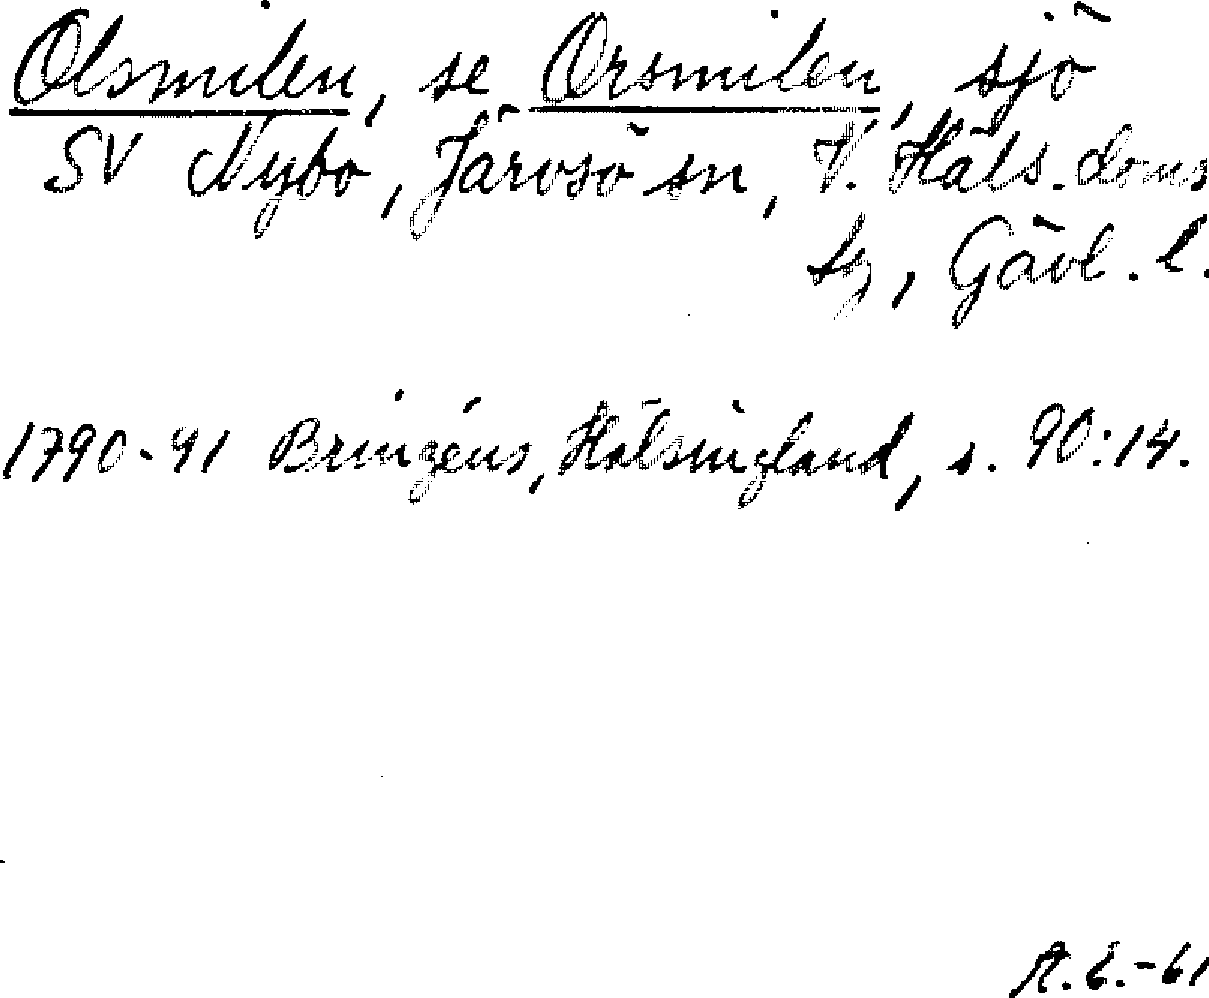 Olsmilen, se Orsmilen, sjö
SV Nybo, Järvsö sn, V. Häls. doms
sg, Gävl. l.
1790-91 Bringéus, Hälsingland, s. 90:14.
A.E.-61